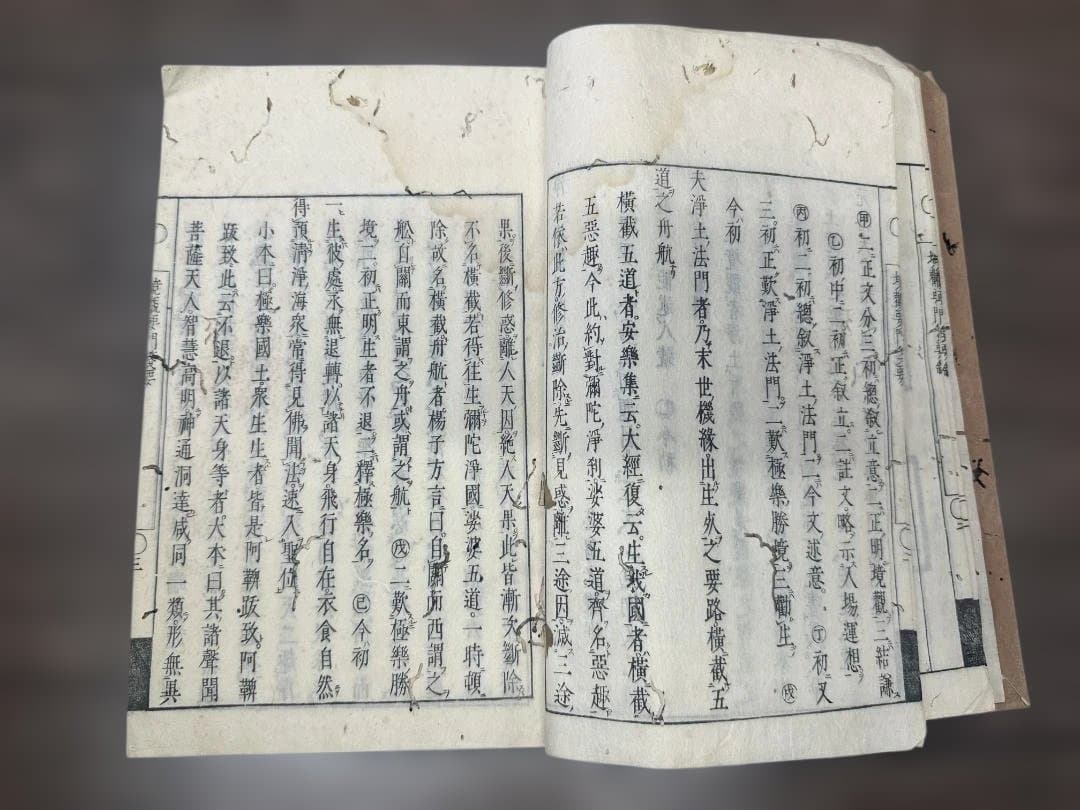 ㊙二正文分三初總敘立意二正明境觀三結謙
㋚初中二初正敘立二註文略示入場運想
㊛初二初總敘淨土法門二今文述意㊜初又
三初正歎淨土法門二歎極樂勝境三勸生㊝
今初
夫淨土法門者乃末世機緣出生死之要路橫截五
道之舟航
橫截五道者安樂集云大經復云生我國者橫截
五惡趣今此約對彌陀淨刹娑婆五道齊名惡趣
若依此方修治斷除先斷見惑離三途因滅三途
果後斷修惑離人天因絕人天果此皆漸次斷除
不名橫截若得往生彌陀淨國娑婆五道一時頓
除故名橫截舟航者楊子方言曰自關而西謂之
舩自關而東謂之舟或謂之航㊝二歎極樂勝
境二初正明生者不退二釋極樂名㊞今初
一生彼處永無退轉以諸天身飛行自在衣食自然
得預清淨海衆常得見佛聞法速入聖位
小本曰極樂國土衆生生者皆是阿鞞跋致阿鞞
跋致此云不退以諸天身等者大本曰其諸聲聞
菩薩天人智慧高明神通洞達咸同一類形無異